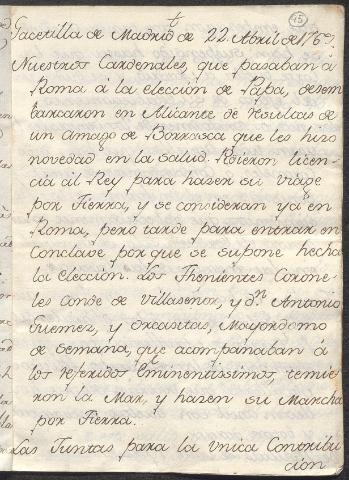 t
15
Gacetilla de Madrid de 22 Abril de 176
Nuestros Cardenales, que pasaban á
Roma á la eleccion de Papa, desem
barcaron en Alicante de resultas de
un amago de Borrasca que les hizo
novedad en la salud. Pidieron licen-
cia al Rey para hazer su viage
por tierra, y se consideran ya en
Roma, pero tarde para entrar en
Conclave por que se supone hecha
la eleccion. Los Thenientes Corone-
les Conde de Villasenor, y Dn. Antonio
Guemez, y Orcasitas, Mayordomo
de semana, que acompañaban á
los referidos Eminentissimos, temie
ron la Mar, y hazen su Marcha
por tierra.
Las Juntas para la Vnica Contribu
cion